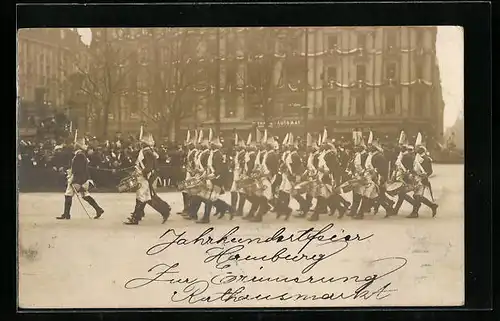 Jahrhundertfeier
Hamburg
Zur Erinnerung
Rathausmarkt